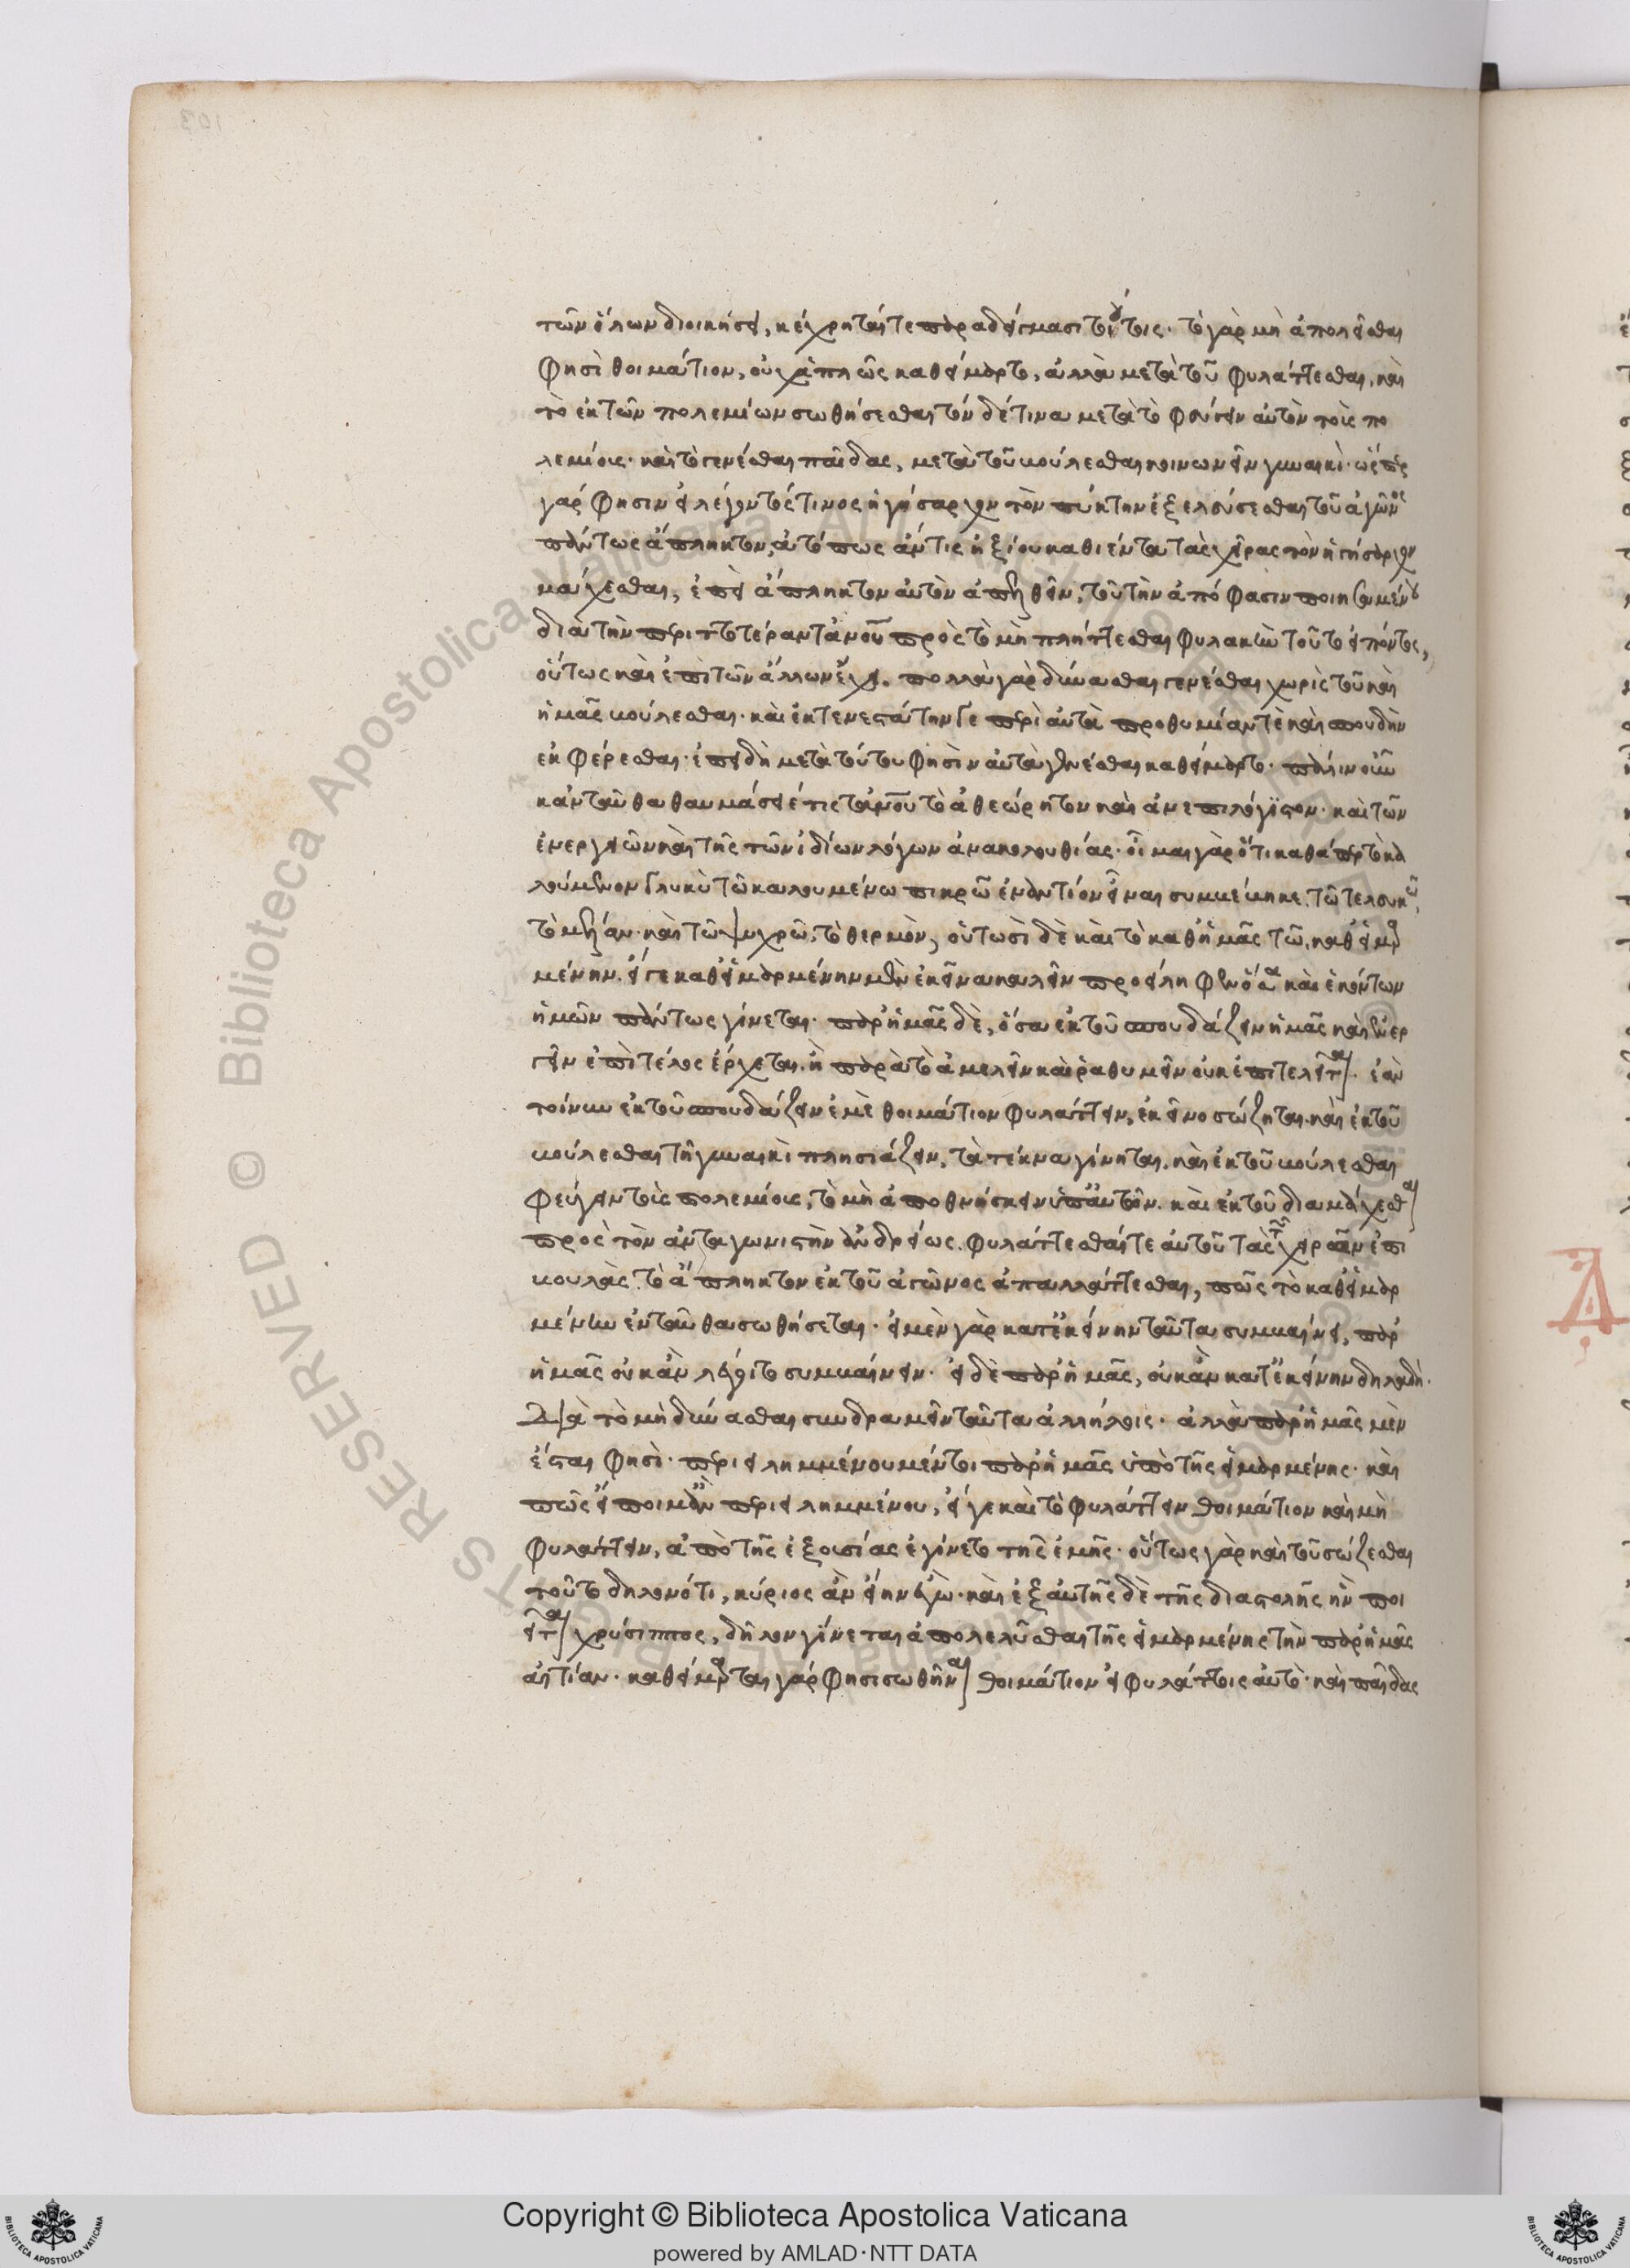 τῶν ὅλων διοικήσει, κέχρηταί τε παραδείγμασι τοιούτοις. τὸ γὰρ μὴ ἀπολεῖσθαι
φησὶ θοιμάτιον, οὐχ ἁπλῶς καθείμαρτο, ἀλλὰ μετὰ τοῦ φυλάττεσθαι, καὶ
τὸ ἐκ τῶν πολεμίων σωθήσεσθαι τόν δέ τινα μετὰ τὸ φεύγειν αὐτὸν τοὺς πο
λεμίους. καὶ τὸ γενέσθαι παῖδας, μετὰ τοῦ βούλεσθαι κοινωνεῖν γυναικί. ὥσπερ
γάρ φησιν εἰ λέγοντός τινος ἡγήσαρχον τὸν πύκτην ἐξελεύσεσθαι τοῦ ἀγῶνος
πάντως ἄπληκτον, ἀτόπως ἄν τις ἠξίου καθιέντα τὰς χεῖρας τὸν ἡγήσαρχον
μάχεσθαι, ἐπεὶ ἄπληκτον αὐτὸν ἀπελθεῖν, τοῦ τὴν ἀπόφασιν ποιησαμένου
διὰ τὴν περιττοτέραν τἀνθρώπου πρὸς τὸ μὴ πλήττεσθαι φυλακὴν τοῦτο εἰπόντος,
οὕτως καὶ ἐπὶ τῶν ἄλλων ἔχει. πολλὰ γὰρ δύνασθαι γενέσθαι χωρὶς τοῦ καὶ
ἡμᾶς βούλεσθαι. καὶ ἐκτενεστάτην γε περὶ αὐτὰ προθυμίαν τὲ καὶ σπουδὴν
εἰσφέρεσθαι. ἐπειδὴ μετὰ τούτου φησὶν αὐτὰ γενέσθαι καθείμαρτο. πάλιν οὖν
κἀνταῦθα θαυμάσειέ τις τἀνθρώπου τὸ ἀθεώρητον καὶ ἀνεπιλόγιστον. καὶ τῶν
ἐνεργειῶν καὶ τῆς τῶν ἰδίων λόγων ἀνακολουθίας. οἶμαι γὰρ ὅτι καθάπερ τὸ κα
λούμενον γλυκὺ τῶ καλουμένω πικρῶ ἐναντίον εἶναι συμβέβηκε. τῶ τε λευκῶ,
τὸ μέλαν. καὶ τῶ ψυχρῶ, τὸ θερμὸν, οὑτωσὶ δὲ καὶ τὸ καθ' ἡμᾶς τῶ, καθ' εἱμαρ
μένην. εἴγε καθ' εἱμαρμένην μὲν ἐκεῖνα καλεῖν προείληφεν ὅσα καὶ ἑκόντων
ἡμῶν πάντως γίνεται. παρ' ἡμᾶς δὲ, ὅσα ἐκ τοῦ σπουδάζειν ἡμᾶς καὶ ἐνερ
γεῖν ἐπὶ τέλος ἔρχεται. ἢ παρὰ τὸ ἀμελεῖν καὶ ῥαθυμεῖν οὐκ ἐπιτελεῖται. ἐὰν
τοίνυν ἐκ τοῦ σπουδάζειν ἐμὲ θοιμάτιον φυλάττειν, ἐκεῖνο σώζηται. καὶ ἐκ τοῦ
βούλεσθαι τῆ γυναικὶ πλησιάζειν, τὰ τέκνα γίνηται. καὶ ἐκ τοῦ βούλεσθαι
φεύγειν τοὺς πολεμίους, τὸ μὴ ἀποθνήσκειν ὑπ' αὐτῶν. καὶ ἐκ τοῦ διαμάχεσθαι
πρὸς τὸν ἀνταγωνιστὴν ἀνδρείως. φυλάττεσθαί τε αὐτοῦ τὰς τῶν χειρῶν ἐπι
βουλὰς, τὸ ἄπληκτον ἐκ τοῦ ἀγῶνος ἀπαλλάττεσθαι, πῶς τὸ καθ' εἱμαρ
μένην ἐνταῦθα σωθήσεται. εἰ μὲν γὰρ κατ' ἐκείνην ταῦτα συμβαίνει, παρ'
ἡμᾶς οὐκ ἂν λέγοιτο συμβαίνειν. εἰ δὲ παρ' ἡμᾶς, οὐκ ἂν κατ' ἐκείνην δηλαδή.
Διὰ τὸ μὴ δύνασθαι συνδραμεῖν ταῦτα ἀλλήλοις. ἀλλὰ παρ' ἡμᾶς μὲν
ἔσται φησὶ. περιειλημμένου μέντοι παρ' ἡμᾶς ὑπὸ τῆς εἱμαρμένης. καὶ
πῶς εἴποιμ' ἂν περιειλημμένου, εἴγε καὶ τὸ φυλάττειν θοιμάτιον καὶ μὴ
φυλάττειν, ἀπὸ τῆς ἐξουσίας ἐγίνετο τῆς ἐμῆς. οὕτως γὰρ καὶ τοῦ σώζεσθαι
τοῦτο δηλονότι, κύριος ἂν εἴην ἐγώ. καὶ ἐξ αὐτῆς δὲ τῆς διαστολῆς ἣν ποι
εῖται χρύσιππος, δῆλον γίνεται ἀπολελῦσθαι τῆς εἱμαρμένης τὴν παρ' ἡμᾶς
αἰτίαν. καθείμαρται γάρ φησι σωθῆναι θοιμάτιον εἰ φυλάττοις αὐτὸ. καὶ παῖδας